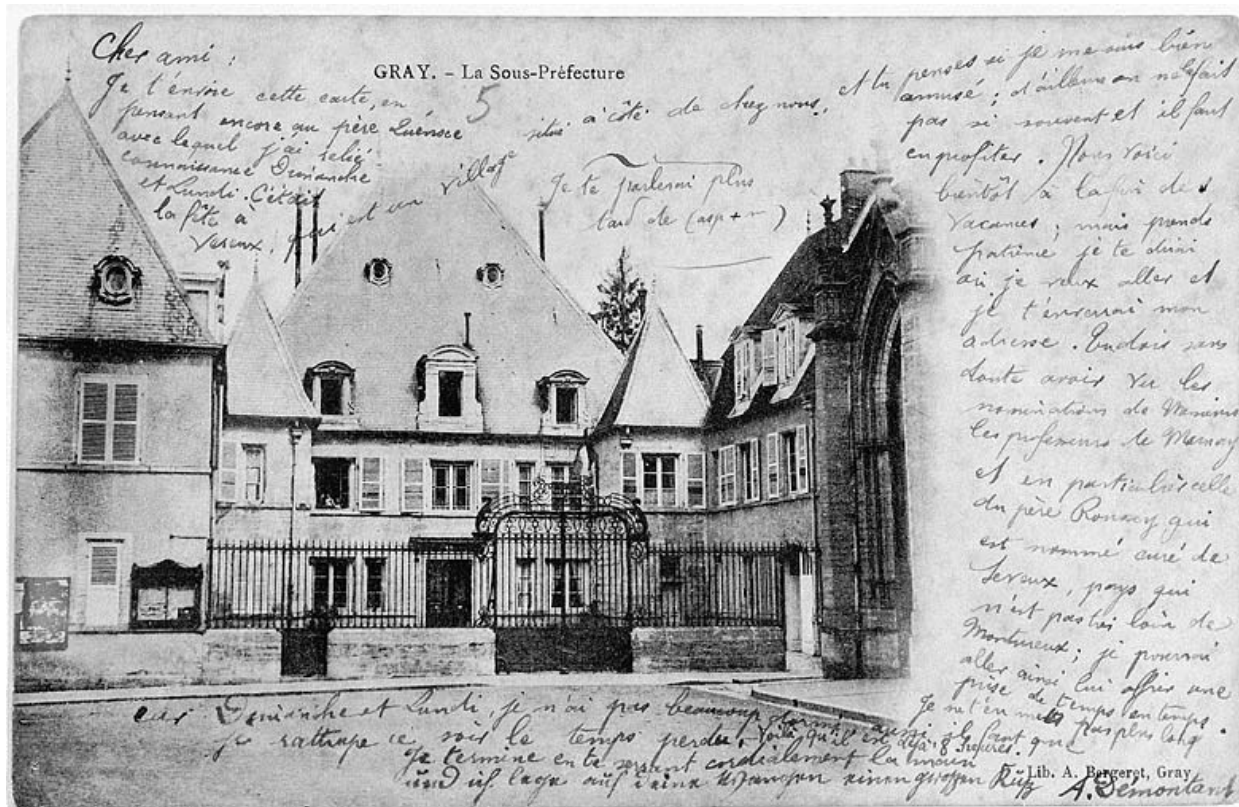 GRAY. - La Sous-Préfecture
Cher ami :
Je t'envoie cette carte, en
pensant encore au père
avec lequel j'ai relié
connaissance Dimanche
et Lundi. C'était
la fête à
Vereux, qui est un village
situé à côté de chez nous,
5
Je te parlerai plus
tard de (asp + m)
et tu penses si je me suis bien
amusé ; d'ailleurs on ne le fait
pas si souvent et il faut
en profiter. Nous voici
bientôt à la fin des
vacances ; mais prends
patience je te dirai
où je veux aller et
je t'enverrai mon
adresse. Tu dois sans
doute avoir vu les
nominations de Messieurs
les professeurs de Marnay
et en particulier celle
du père qui
est nommé curé de
Seveux, pays qui
n'est pas très loin de
Montureux ; je pourrai
aller ainsi lui offrir une
prise de temps en temps.
Je ne t'en mets pas plus long
car Dimanche et Lundi, je n'ai pas beaucoup dormi, aussi il faut que
je rattrape ce soir le temps perdu. Voilà qu'il est déjà 8 heures.
Je termine en te serrant cordialement la main
und ich lege auf deine Wangen einen grossen Kuß
A. Demontant
Lib. A. Bergeret, Gray